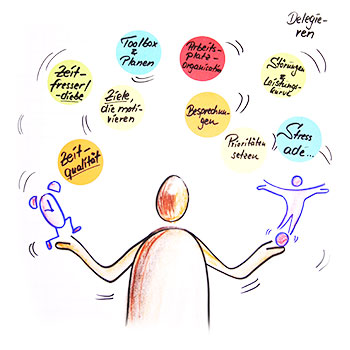 Delegie-
ren
Toolbox
&
Planen
Arbeits-
platz-
organisation
Zeit-
fresser/
-diebe
Störungen
&
Leistungs-
kurve
Ziele,
die moti-
vieren
Besprechun-
gen
Prioritäten
setzen
Stress
ade...
Zeit-
qualität